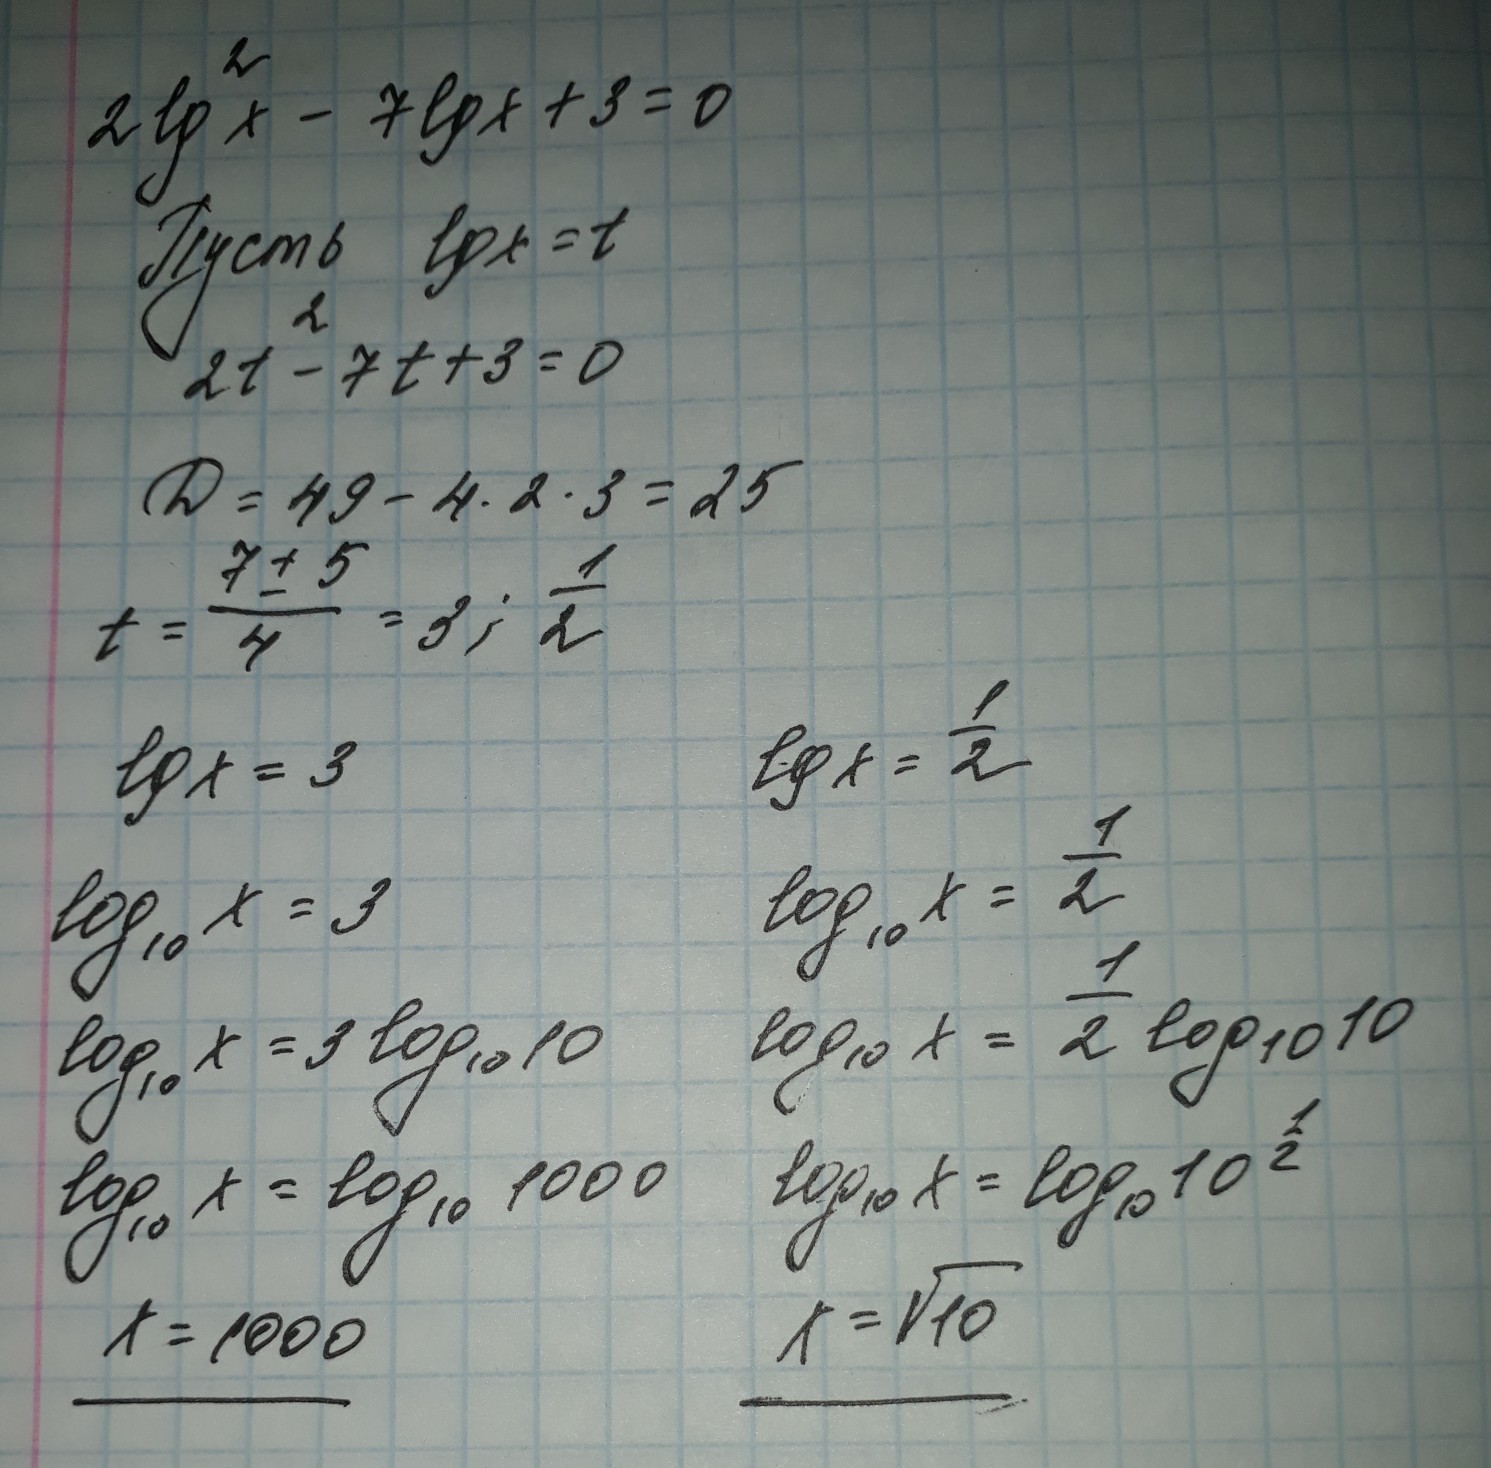 2lg²x - 7lgx + 3 = 0
Пусть lgx = t
2t² - 7t + 3 = 0
D = 49 - 4 · 2 · 3 = 25
t = (7 ± 5)/4 = 3; 1/2
lgx = 3
log₁₀ x = 3
log₁₀ x = 3 log₁₀ 10
log₁₀ x = log₁₀ 1000
x = 1000
lgx = 1/2
log₁₀ x = 1/2
log₁₀ x = 1/2 log₁₀ 10
log₁₀ x = log₁₀ 10^(1/2)
x = √10